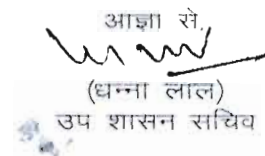 आज्ञा से,
(धन्ना लाल)
उप शासन सचिव